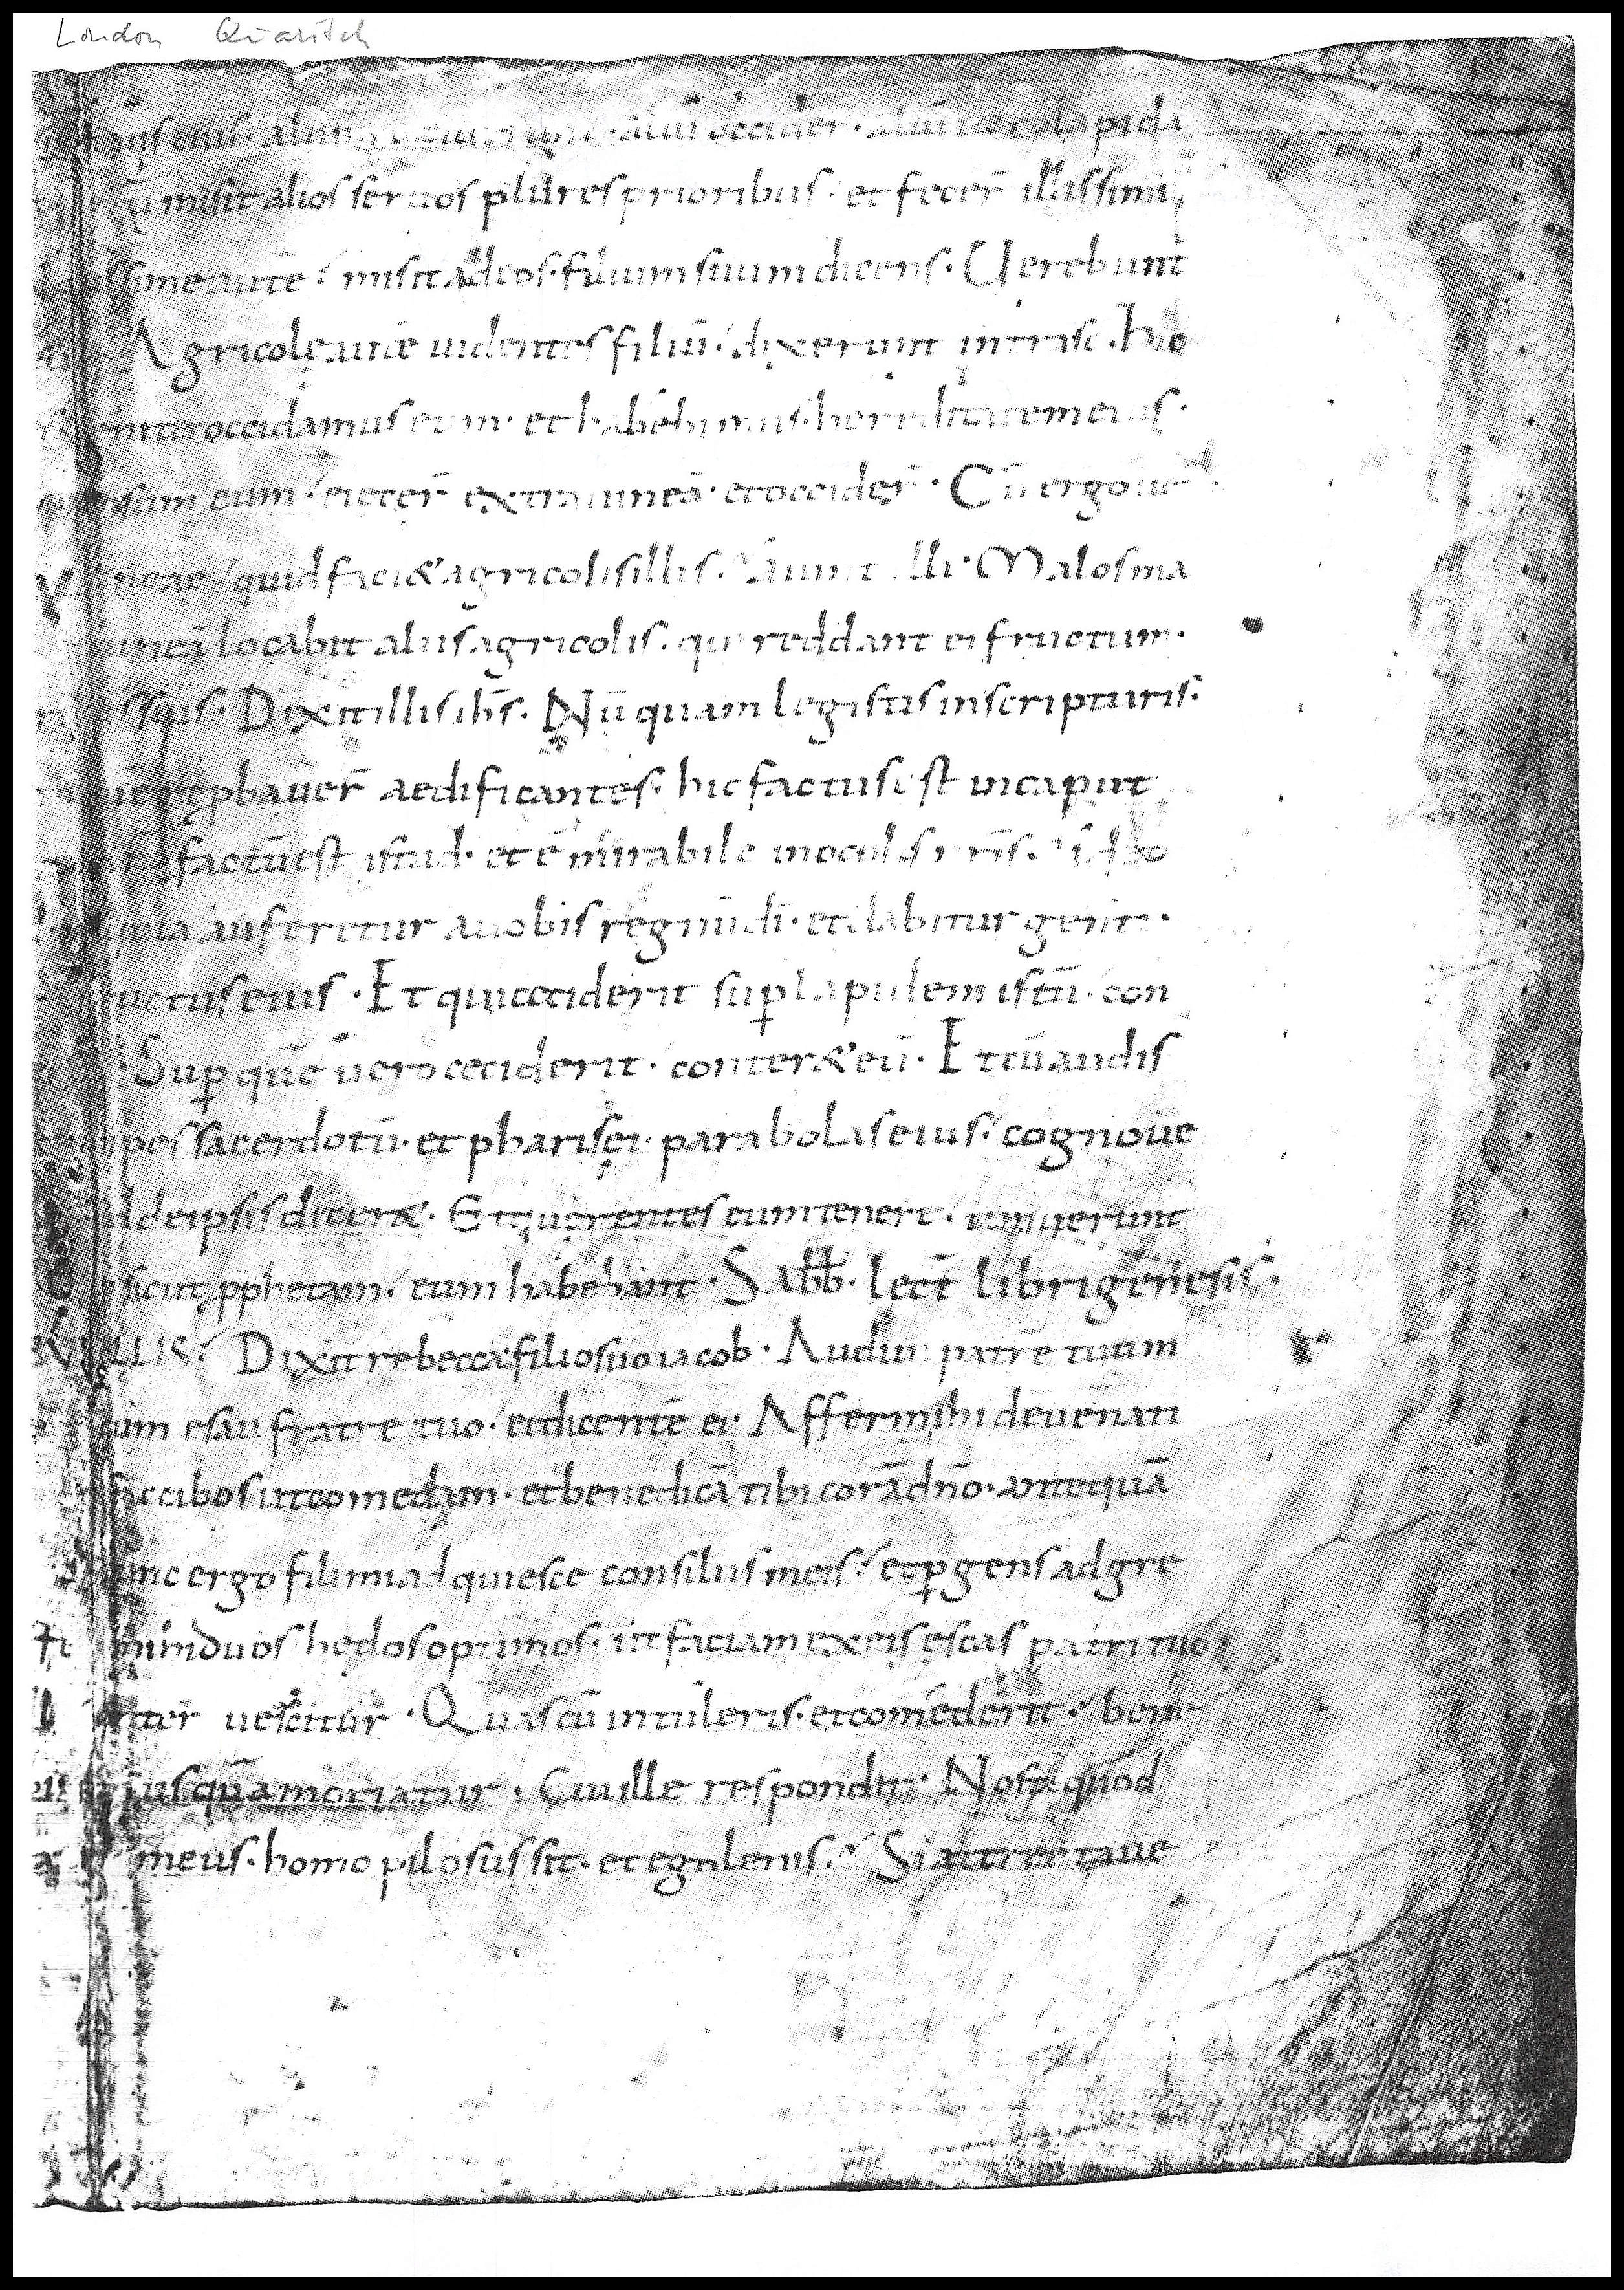 London Quaritch
eius · aliū occider̄ · aliū uero lapida
misit alios seruos plures prioribus · et fecer̄ illis simi
ssime autē · misit ad eos · filium suum dicens · Uerebunt
Agricole autē uidentes filiū · dixerunt intra se · Hic
occidamus eum · et habebimus · hereditatem eius ·
eum · eiecer̄ extra uineā · et occider̄ · Cū ergo uen
uineae quid faci& agricolis illis · Aiunt illi · Malos ma
uineā locabit aliis agricolis · qui reddant ei fructum ·
suis · Dixit illis ih̄s · Nū quam legistis in scripturis ·
repbauer̄ aedificantes · hic factus est in caput
factū est istud · et ē mirabile in oculis nr̄is · ideo
quia auferetur a uobis regnū dī · et dabitur genti ·
fructus eius · Et qui ceciderit sup lapidem istū · con
Sup quē uero ceciderit · conter& eū · Et cū audis
pes sacerdotū · et pharisęi · parabolas eius · cognoue
d de ipsis dicer& · Et quęrentes eum tenere · timuerunt
sicut pphetam · eum habebant · Sabb · lect̄ libri genesis ·
IN DIEBUS ILLIS · Dixit rebecca filio suo iacob · Audiui patrē tuum
cum esau fratre tuo · et dicentē ei · Affer mihi de uenati
fac cibos ut comedam · et benedicā tibi corā dn̄o · antequā
Nunc ergo fili mi adquiesce consiliis meis · et pgens ad gre
mihi duos hędos optimos · ut faciam ex eis escas patri tuo ·
libenter uescitur · Quas cū intuleris · et comederit · bene
priusquā moriatur · Cui ille respondit · Nosti quod
meus · homo pilosus sit · et ego lenis · Si attrectaue